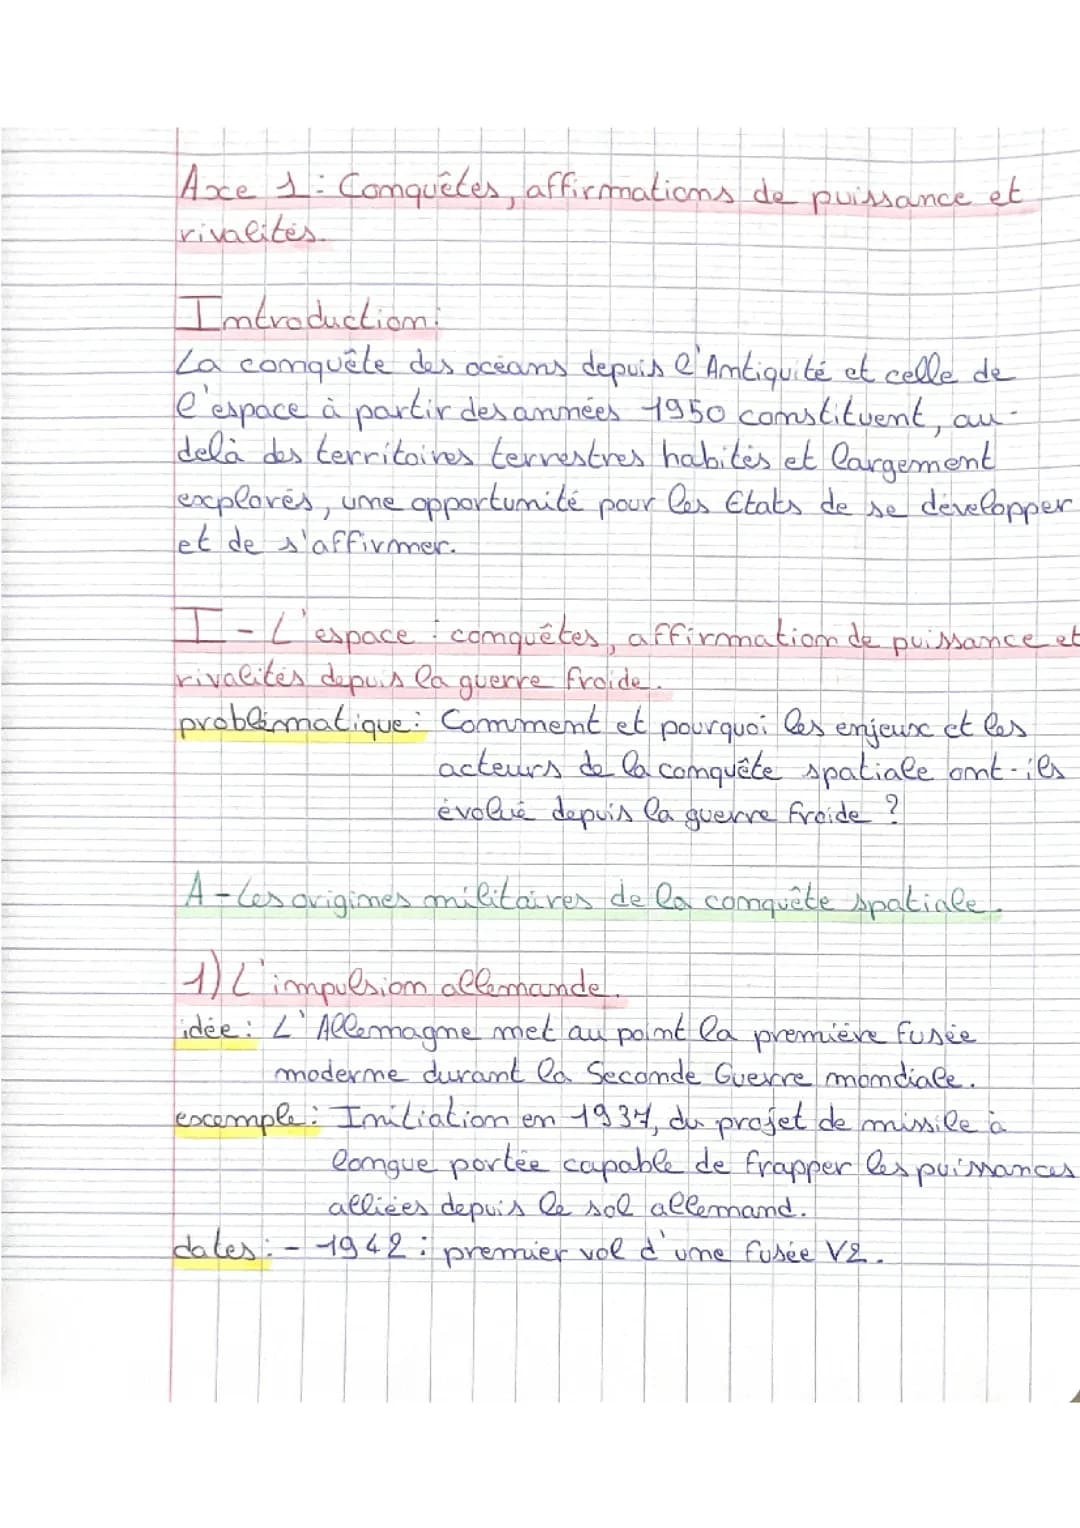 Axe 1 : Conquêtes, affirmations de puissance et
rivalités.
Introduction :
La conquête des océans depuis l'Antiquité et celle de
l'espace à partir des années 1950 constituent, au-
delà des territoires terrestres habités et largement
explorés, une opportunité pour les Etats de se développer
et de s'affirmer.
I - L'espace : conquêtes, affirmation de puissance et
rivalités depuis la guerre froide.
problématique : Comment et pourquoi les enjeux et les
acteurs de la conquête spatiale ont-ils
évolué depuis la guerre froide ?
A - Les origines militaires de la conquête spatiale.
1) L'impulsion allemande.
idée : L'Allemagne met au point la première fusée
moderne durant la Seconde Guerre mondiale.
exemple : Initiation en 1937, du projet de missile à
longue portée capable de frapper les puissances
alliées depuis le sol allemand.
dates : - 1942 : premier vol d'une fusée V2.